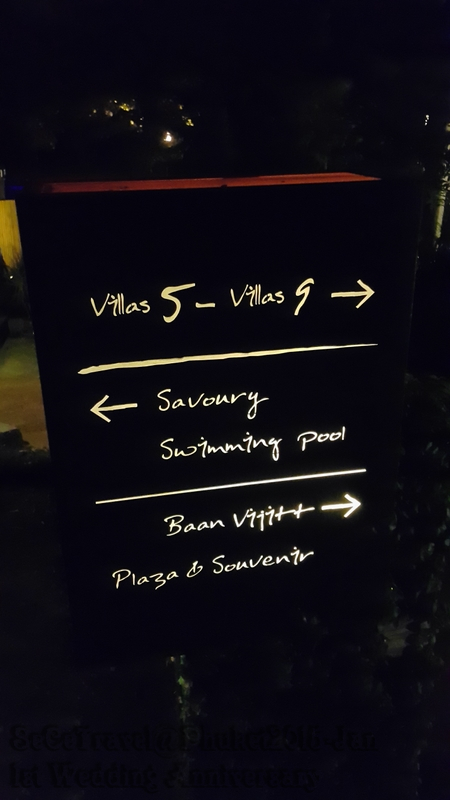 Villas 5 – Villas 9 →
← Savoury
Swimming Pool
Baan Vijitt →
Plaza & Souvenir
1st Wedding Anniversary